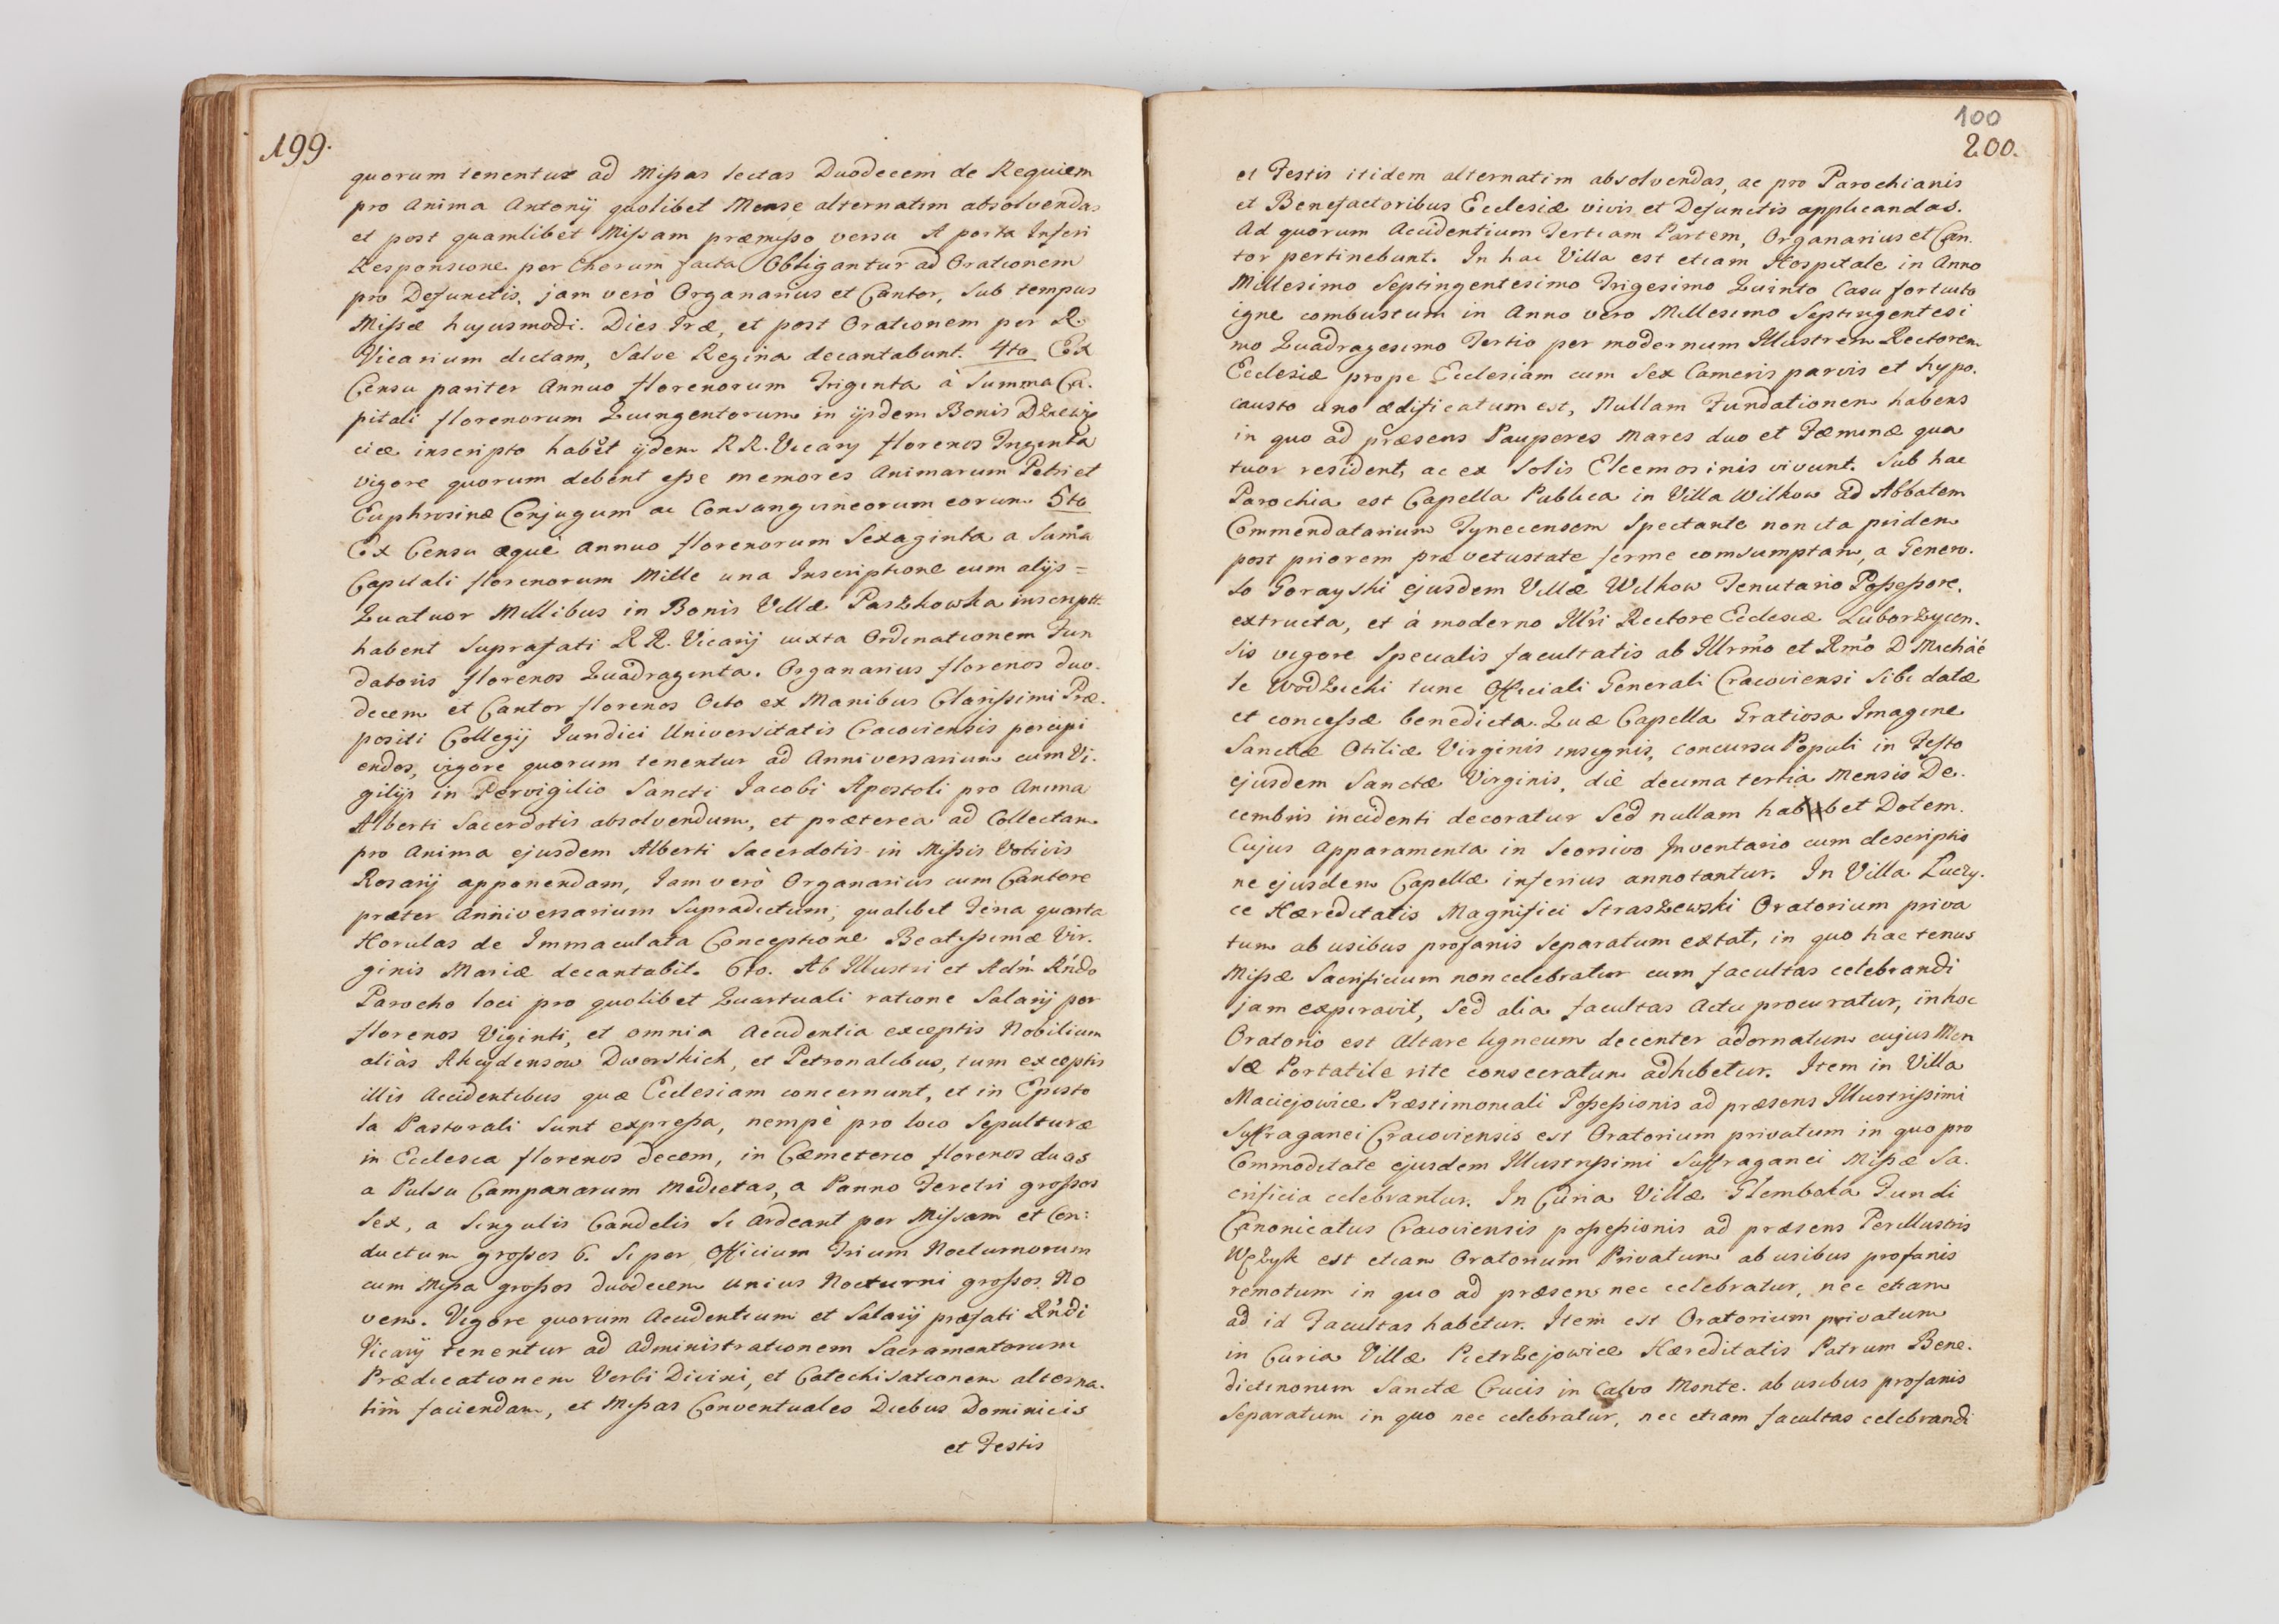 199.
quorum tenentur ad Missas lectas Duodecem de Requiem
pro Anima Antonij quolibet Mense alternatim absolvendas
et post quamlibet Missam præmisso versu A porta Inferi
Responsione per Chorum facta Obligantur ad Orationem
pro Defunctis, jam verò Organarius et Cantor, Sub tempus
Missæ hujusmodi. Dies Iræ, et post Orationem per R.
Vicarium dictam, Salve Regina decantabunt. 4to Ex
Censu pariter Annuo florenorum Triginta à Summa Ca.
pitali florenorum Quingentorum in ijsdem Bonis
ciæ inscripto habēt ijdem RR. Vicarij florenos Triginta
vigore quorum debent esse memores Animarum Petri et
Euphrosinæ Conjugum ac Consanguineorum eorum 5to
Ex Censu æquè Annuo florenorum Sexaginta a Suma
Capitali florenorum Mille una Inscriptione cum alijs =
Quatuor Millibus in Bonis Villæ Paszkowka inscript.
habent Suprafati RR. Vicarij iuxta Ordinationem Fun
datoris florenos Quadraginta. Organarius florenos duo.
decem et Cantor florenos Octo ex Manibus Clarissimi Præ.
positi Collegij Juridici Universitatis Cracoviensis percipi
endos, vigore quorum tenentur ad Anniversarium cum Vi.
gilijs in Pervigilio Sancti Jacobi Apostoli pro Anima
Alberti Sacerdotis absolvendum, et præterea ad Collectam
pro Anima ejusdem Alberti Sacerdotis in Missis Votivis
Rosarij apponendam, Jam verò Organarius cum Cantore
præter Anniversarium Supradictum, qualibet Feria quarta
Horulas de Immaculata Conceptione Beatissimæ Vir.
ginis Mariæ decantabit. 6to. Ab Illustri et Adm̄ Rńdo
Parocho loci pro quolibet Quartuali ratione Salarij per
florenos Viginti, et omnia Accidentia exceptis Nobilium
aliàs Akcydensow Dworskich, et Petronalibus, tum exceptis
illis Accidentibus quæ Ecclesiam concernunt, et in Episto
la Pastorali Sunt expressa, nempè pro loco Sepulturæ
in Ecclesia florenos decem, in Cæmeterio florenos duas
a Pulsu Campanarum Medietas, a Panno Feretri grossos
Sex, a Singulis Candelis Si Ardeant per Missam et Con:
ductum grossos 6. Si per Officium Trium Nocturnorum
cum Missa grossos duodecem unius Nocturni grossos No
vem. Vigore quorum Accidentium et Salarij præfati Rńdi
Vicarij tenentur ad Administrationem Sacramentorum
Prædicationem Verbi Divini, et Catechisationem alterna.
tim faciendam, et Missas Conventuales Diebus Dominicis
et Festis
100
200.
et Festis itidem alternatim absolvendas, ac pro Parochianis
et Benefactoribus Ecclesiæ vivis et Defunctis applicandas.
Ad quorum Accidentium Tertiam Partem, Organarius et Can.
tor pertinebunt. In hac Villa est etiam Hospitale in Anno
Millesimo Septingentesimo Trigesimo Quinto Casu fortuito
igne combustum in Anno vero Millesimo Septingentesi
mo Quadragesimo Tertio per modernum Illustrem Rectorem
Ecclesiæ prope Ecclesiam cum Sex Cameris parvis et hypo.
causto uno ædificatum est, Nullam Fundationem habens
in quo ad præsens Pauperes Mares duo et Fæminæ qua
tuor resident, ac ex Solis Eleemosinis vivunt. Sub hac
Parochia est Capella Publica in Villa Wilkow ad Abbatem
Commendatarium Tynecensem Spectante non ita pridem
post priorem præ vetustate ferme comsumptam, a Genero.
so Gorayski ejusdem Villæ Wilkow Tenutario Possessore,
extructa, et à moderno Illri Rectore Ecclesiæ Luborzycen.
sis vigore Specialis facultatis ab Illrmo et Rmo D Michaé
le Wodzicki tunc Officiali Generali Cracoviensi Sibi datæ
et concessæ benedicta. Quæ Capella Gratiosa Imagine
Sanctæ Otiliæ Virginis insignis, concursu Populi in Festo
ejusdem Sanctæ Virginis, die decima tertia Mensis De.
cembris incidenti decoratur Sed nullam habet Dotem.
Cujus Apparamenta in Seorsivo Inventario cum descriptio
ne ejusdem Capellæ inferius annotantur. In Villa Luczy.
ce Hæreditatis Magnifici Straszewski Oratorium priva
tum ab usibus profanis Separatum extat, in quo hac tenus
Missæ Sacrificium non celebratur cum facultas celebrandi
jam expiravit, Sed alia facultas Actu procuratur, in hoc
Oratorio est Altare ligneum decenter adornatum cujus Men
sæ Portatile rite consecratum adhibetur. Item in Villa
Maciejowice Præstimoniali Possessionis ad præsens Illustrissimi
Suffraganei Cracoviensis est Oratorium privatum in quo pro
Commoditate ejusdem Illustrissimi Suffraganei Missæ Sa.
crificia celebrantur. In Curia Villæ Glemboka Fundi
Canonicatus Cracoviensis possessionis ad præsens Perillustris
Wężyk est etiam Oratorium Privatum ab usibus profanis
remotum in quo ad præsens nec celebratur, nec etiam
ad id Facultas habetur. Item est Oratorium privatum
in Curia Villæ Pietrzejowice Hæreditatis Patrum Bene.
dictinorum Sanctæ Crucis in Calvo Monte. ab usibus profanis
Separatum in quo nec celebratur, nec etiam facultas celebrandi